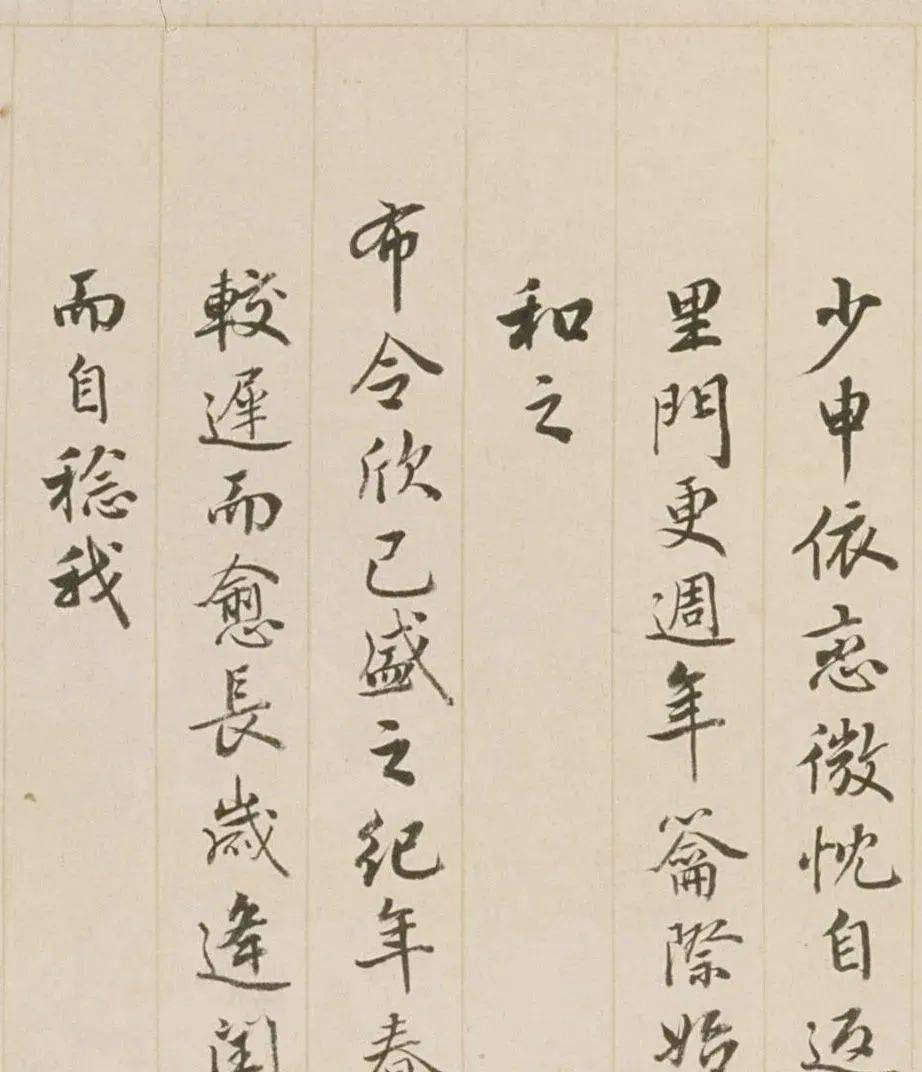 少申依戀微忱自返
里門更週年籥際始
和之
布令欣已盛之紀年春
較遲而愈長歲逢閏
而自稔我